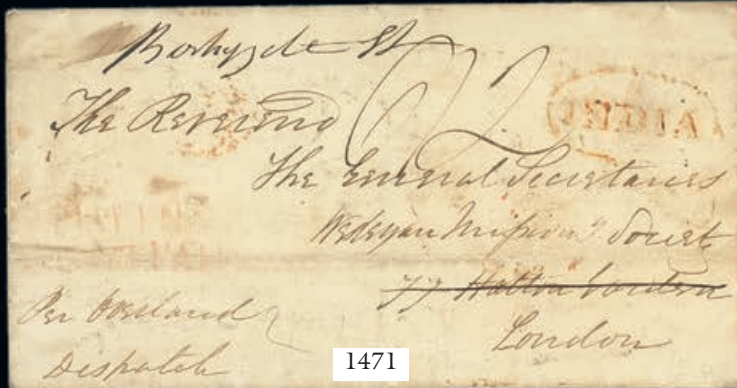 St
The Reverend
INDIA
The General Secretaries
Wesleyan Mission^y Society
77 Hatton Garden
London
Per Overland
Dispatch
1471